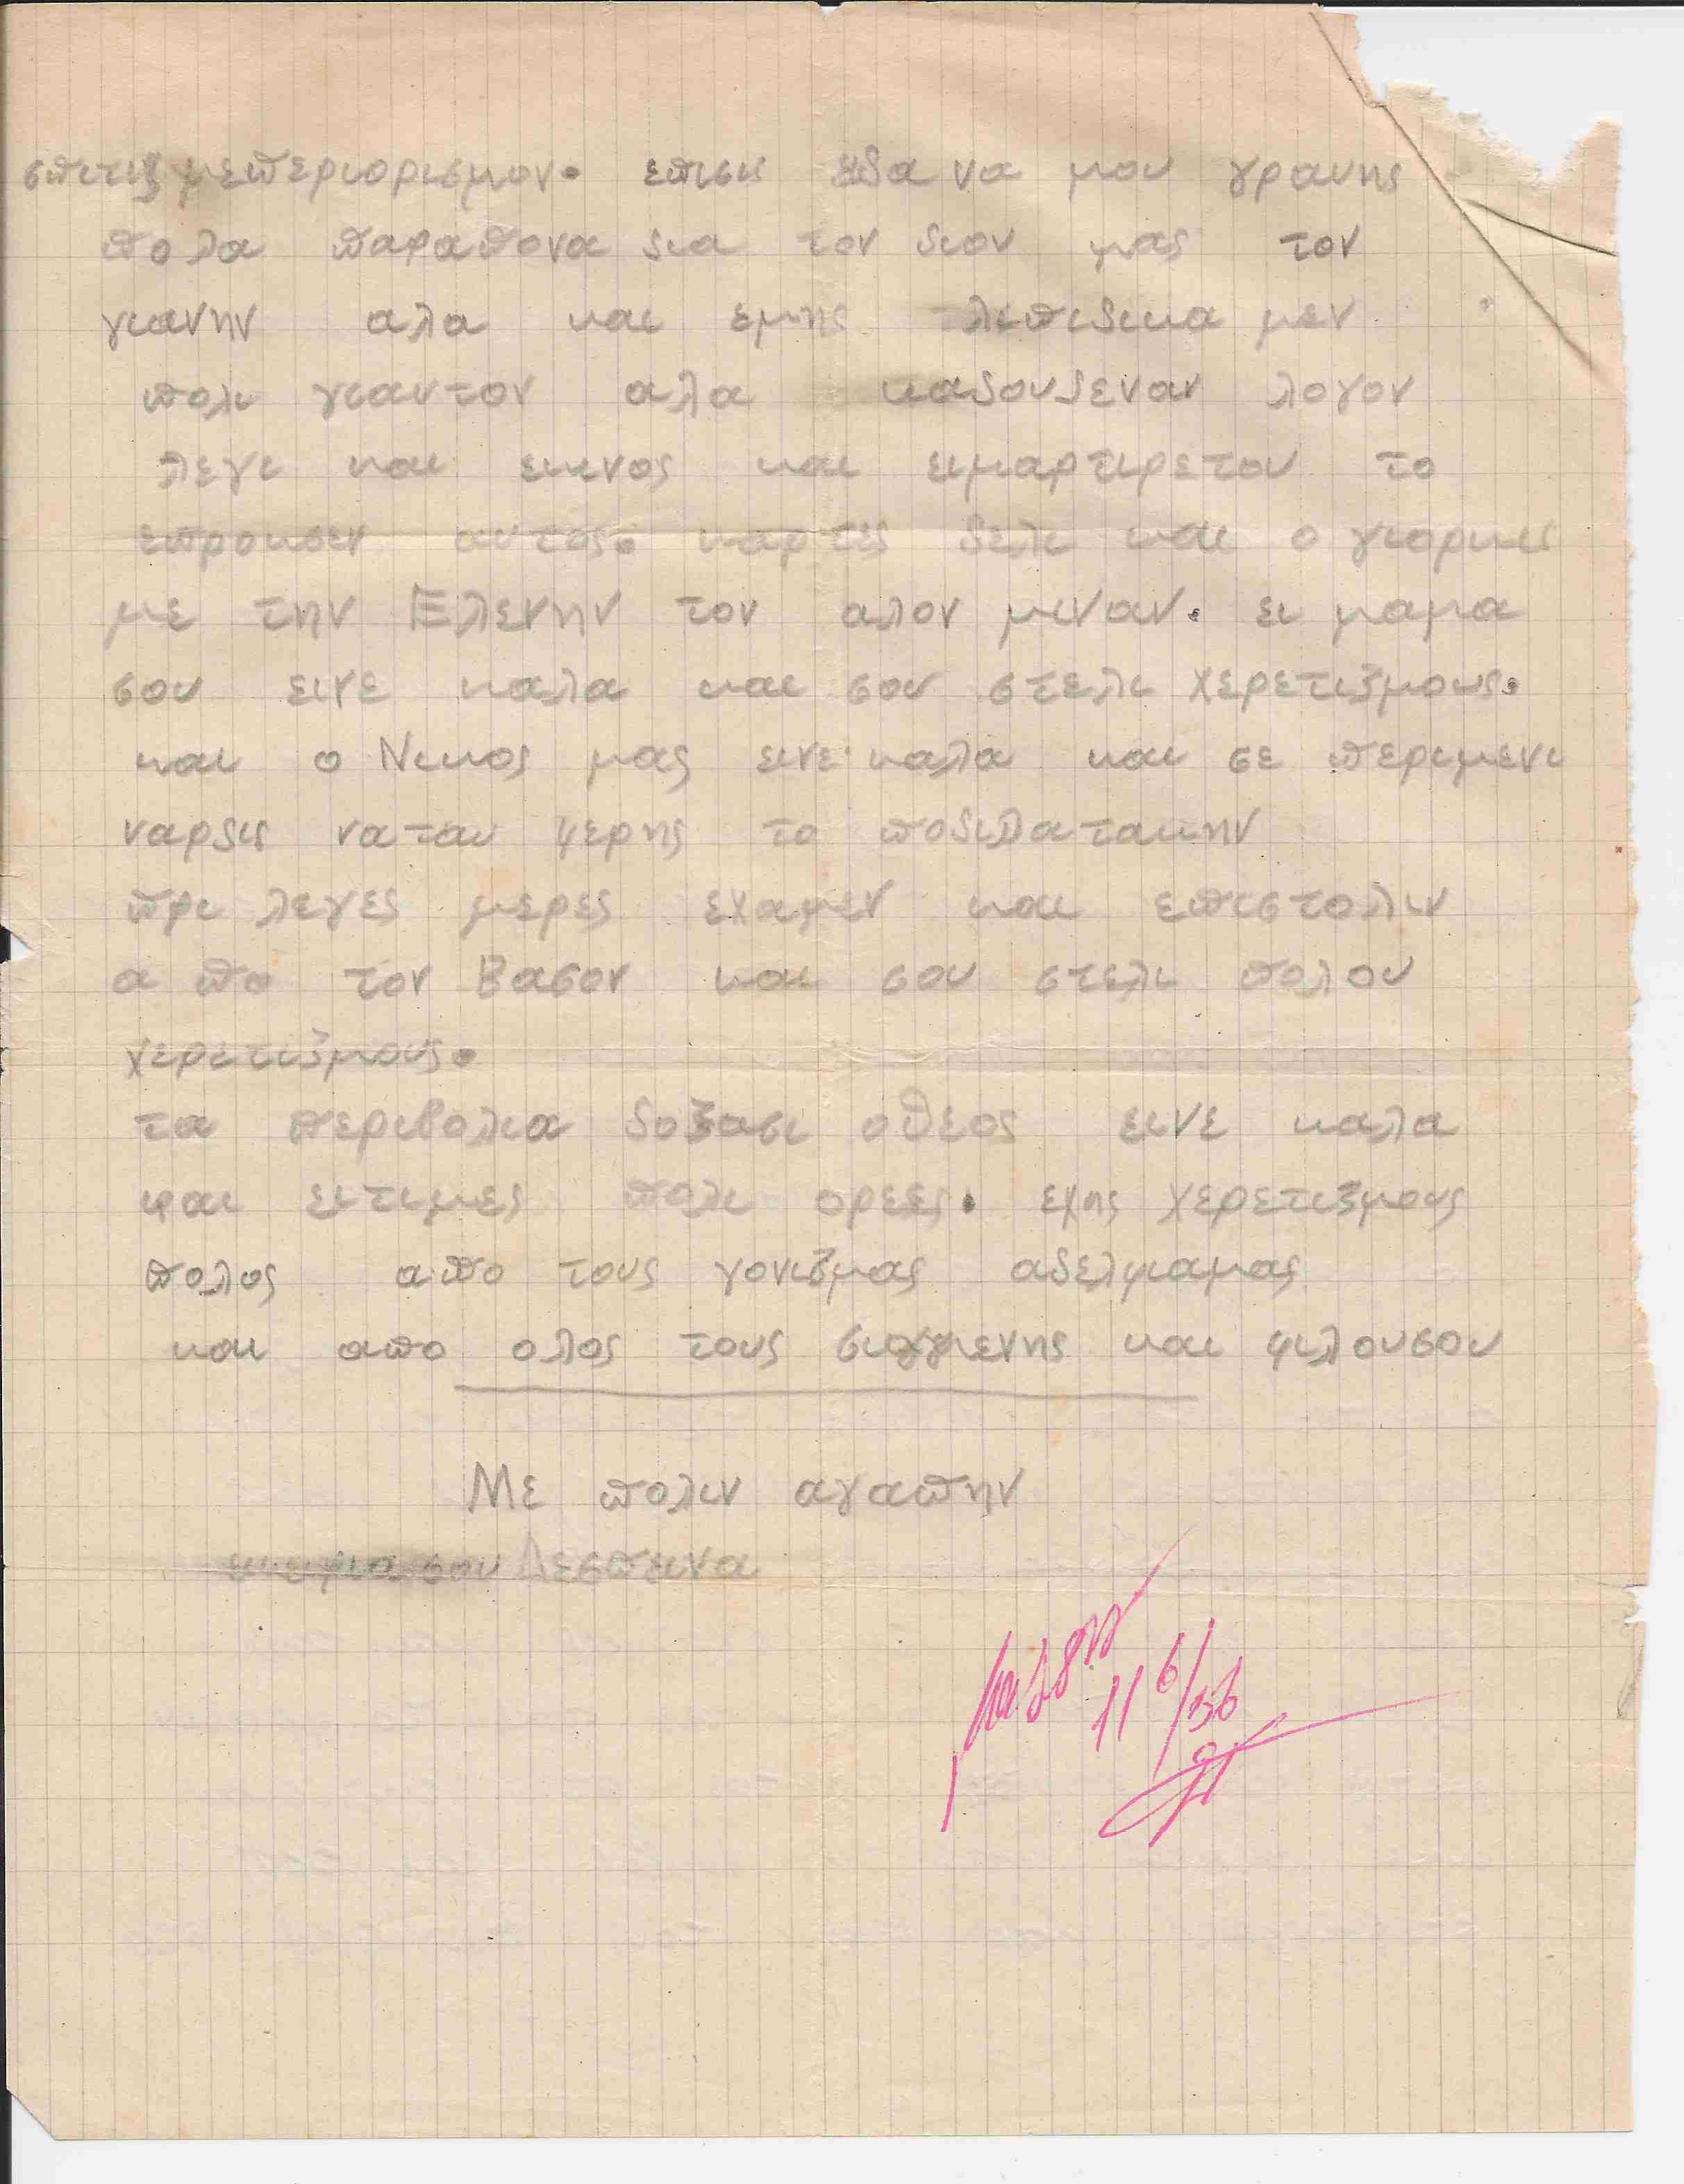 σπιτιξ μεπεριορισμον. επισις ιδα να μου γραυης
πολα παραπονα δια τον διον μας τον
γιανην αλα και εμης λιπιδικα μεν
πολι γιαυτον αλα καδουδεναν λογον
λεγι και εκινος και ειμαρτιρετου το
επροκσεν αυτος. καρτες δελι και ο γιορκις
με την Ελενην τον αλον μιναν. ει μαμα
σου εινε καλα και σου στελι χερετιξμους.
και ο Νικος μας εινε καλα και σε περιμενι
ναρδις νατου φερης το ποδιλατακην
πρι λεγες μερες εχαμεν και επιστολιν
απο τον Βασον και σου στελι πολου
χερετιξμους.
τα περιβολια δοξασι οθεος εινε καλα
και ειτιμες πολι ορεες. εχης χερετιξμους
πολος απο τους γονιξμας αδελφιαμας
και απο ολος τους συγγενης και φιλουσου
Με πολιν αγαπην
Δεσπεινα
11 6/56